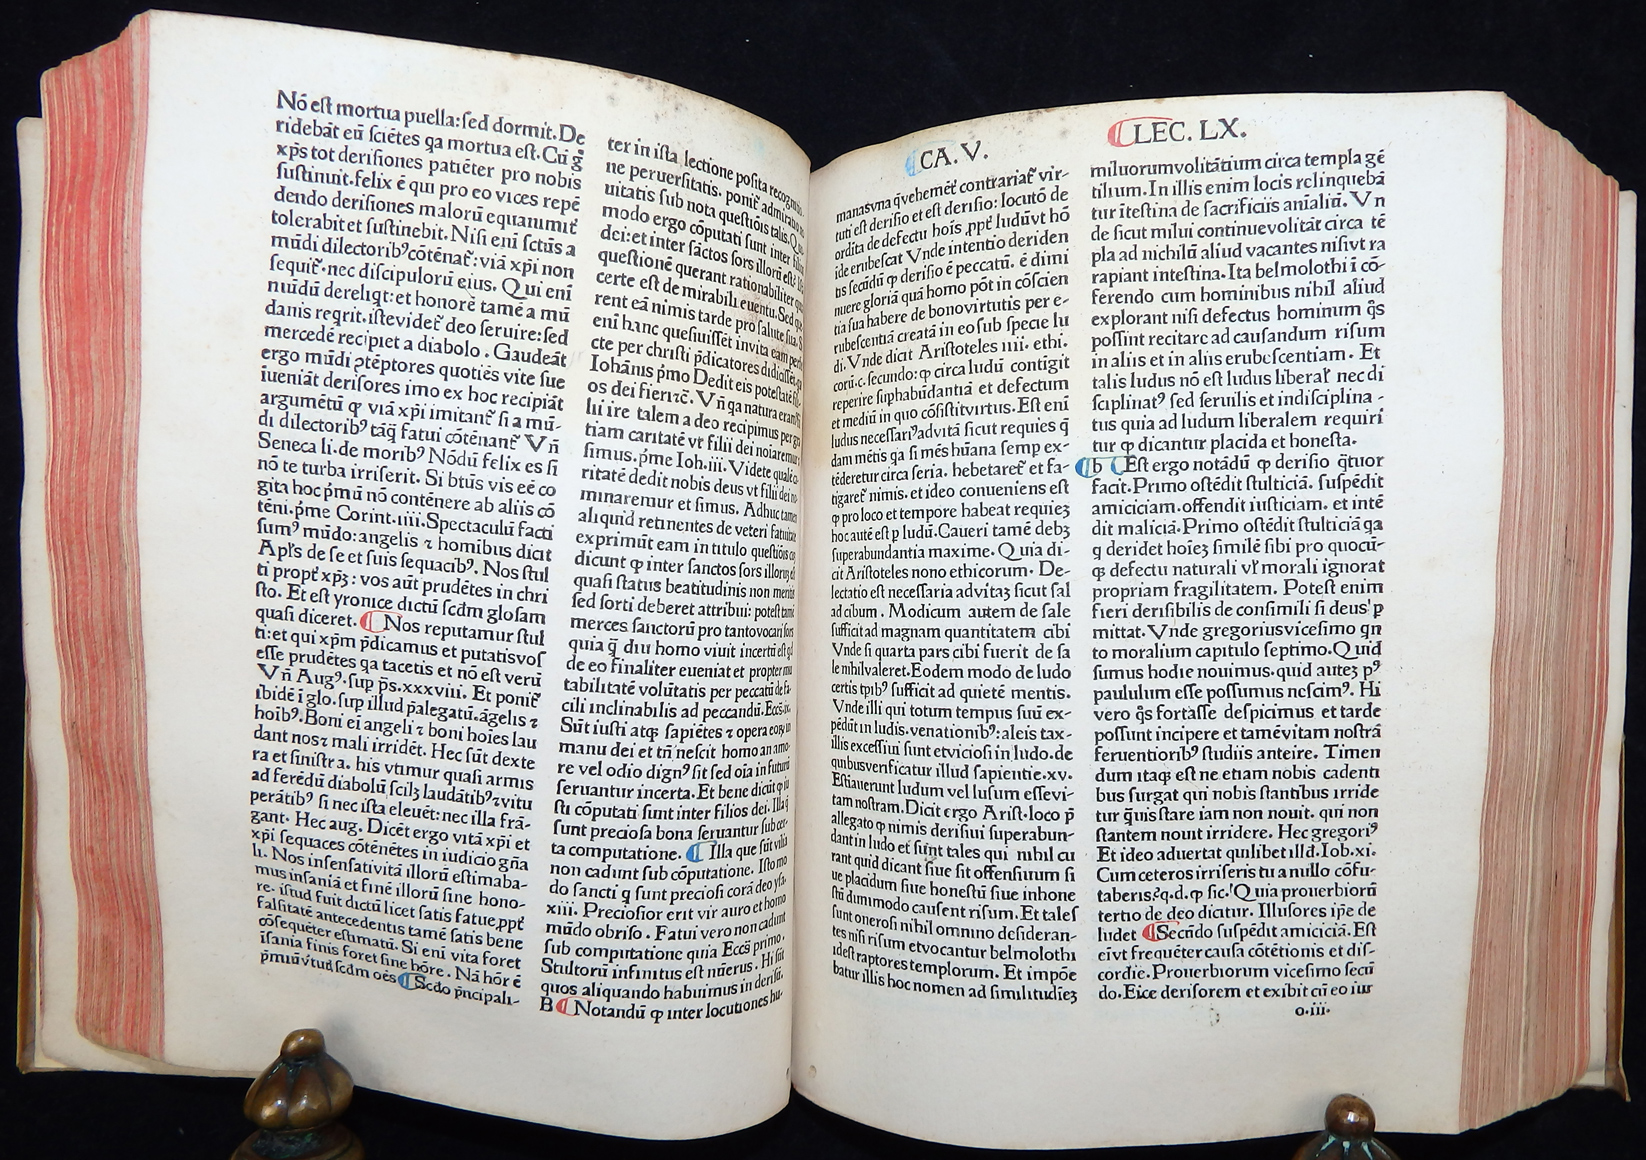 Nō est mortua puella:sed dormit.De
ridebāt eū sciētes qa mortua est.Cū g̃
xp̄s tot derisiones patiēter pro nobis
sustinuit.felix ē qui pro eo vices repē
dendo derisiones malorū equanimit̃
tolerabit et sustinebit. Nisi eni sctūs a
mūdi dilectoribꝰ cōtēnat̃:viā xp̄i non
sequit̃.nec discipulorū eius. Qui enī
mūdū dereliqt:et honorē tamē a mū
danis reqrit.iste videt̃ deo seruire:sed
mercedē recipiet a diabolo. Gaudeāt
ergo mūdi ꝯtēptores quotiēs vite sue
iueniāt derisores imo ex hoc recipiāt
argumētū ꝙ viā xp̄i imitant̃ si a mū-
di dilectoribꝰ tāꝗ̄ fatui cōtēnant̃ Vñ
Seneca li.de moribꝰ Nōdū felix es si
nō te turba irriserit. Si btūs vis eē co
gita hoc p̄mū nō contēnere ab aliis cō
tēni.p̄me Corint.iiii.Spectaculū facti
sumꝰ mūdo:angelis ⁊ homibus dicit
Apl̄s de se et suis sequacibꝰ. Nos stul
ti propt̃ xp̄ꝫ: vos aūt prudētes in chri
sto. Et est yronice dictū scdm glosam
quasi diceret. ¶ Nos reputamur stul
ti:et qui xp̄m p̄dicamus et putatis vos
esse prudētes qa tacetis et nō est verū
Vñ Augꝰ.sup ps̄.xxxviii. Et ponit̃
ibidē ī glo.sup illud p̄alegatū.āgelis ⁊
hoibꝰ.Boni ei angeli ⁊ boni hoies lau
dant nos⁊ mali irridēt. Hec sūt dexte
ra et sinistra. his vtimur quasi armis
ad ferēdū diabolū scilꝫ laudātibꝰ⁊vitu
perātibꝰ si nec ista eleuēt:nec illa frā-
gant. Hec aug. Dicēt ergo vitā xp̄i et
xp̄i sequaces cōtēnētes in iudicio gn̄a
li. Nos insensati vitā illorū estimaba-
mus insaniā et finē illorū sine hono-
re. istud fuit dictū licet satis fatue,ppt̃
falsitatē antecedentis tamē satis bene
cōsequēter estimatū. Si enī vita foret
īsania finis foret sine hōre. Nā hōr ē
p̄miū v̓tutꝭ scdm oēs ¶ Scdo p̄ncipali-
ter in ista lectione posita recognitio-
ne peruersitatis. ponit̃ admiratio no
uitatis sub nota questiōis talis.Quo
modo ergo cōputati sunt inter filios
dei:et inter sāctos sors illorū est? Istā
questionē querant rationabiliter quia
certe est de mirabili euentu.Sed que
rent eā nimis tarde pro salute sua. Si
enī hanc quesiuissēt in vita eam per
cte per christi p̄dicatores didicissēt.qa
Iohānis p̄mo Dedit eis potestatē fili
os dei fieri⁊c̄. Vñ qa natura eramus
lii ire talem a deo recipimus per gra
tiam caritatē vt filii dei noiaremur ⁊
simus. p̄me Ioh.iii. Videte qualē ca
ritatē dedit nobis deus vt filii dei no
minaremur et simus. Adhuc tamen
aliquid retinentes de veteri fatuitate
exprimūt eam in titulo questiōis cū
dicunt ꝙ inter sanctos sors illorum est
quasi status beatitudinis non meritis
sed sorti deberet attribui: potest tamē
merces sanctorū pro tanto vocari sors
quia ꝗ̄ diu homo viuit incertū est qd
de eo finaliter eueniat et propter mu
tabilitatē volūtatis per peccatū de fa-
cili inclinabilis ad peccandū.Eccs̄.ix.
Sūt iusti atqꝫ sapiētes ⁊ opera eoꝝ in
manu dei et tn̄ nescit homo an amo-
re vel odio dignꝰ sit sed oīa in futurū
seruantur incerta.Et bene dicūt ꝙ iu
sti cōputati sunt inter filios dei. Illa ꝗ̄
sunt preciosa bona seruantur sub cer-
ta computatione. ¶ Illa que sūt vilia
non cadunt sub cōputatione. Isto mo
do sancti q sunt preciosi corā deo ysa.
xiii. Preciosior erit vir auro et homo
mūdo obriso. Fatui vero non cadunt
sub computatione quia Eccs̄ primo.
Stultorū infinitus est nūerus. Hi sūt
quos aliquando habuimus in derisū.
B ¶ Notandū ꝙ inter locutiones hu-
¶ CA. V.
¶ LEC. LX.
manas vna q̄ vehemēt̃ contrariat̃ vir-
tuti est derisio et est derisio: locutō de
ordita de defectu hoīs ,ppt̃ ludū vt hō
ide erubescat Vnde intentio deriden
tis secūdū ꝙ derisio ē peccatū. ē dimi
nuere gloriā quā homo pōt in cōscien
tia sua habere de bono virtutis per e-
rubescentiā creatā in eo sub specie lu
di. Vnde dicit Aristoteles iiii. ethi.
corū.c. secundo: ꝙ circa ludū contigit
reperire suphabūdantiā et defectum
et mediū in quo cōsistit virtus. Est enī
ludus necessariꝰ ad vitā sicut requies q̄
dam mētis qa si mēs hūana semp ex-
tēderetur circa seria. hebetaret̃ et fa-
tigaret̃ nimis. et ideo conueniens est
ꝙ pro loco et tempore habeat requiez
hoc autē est p ludū.Caueri tamē debꝫ
superabundantia maxime. Quia di-
cit Aristoteles nono ethicorum. De-
lectatio est necessaria ad vitaꝫ sicut sal
ad cibum. Modicum autem de sale
sufficit ad magnam quantitatem cibi
Vnde si quarta pars cibi fuerit de sa
le nihil valeret.Eodem modo de ludo
certis tpibꝰ sufficit ad quietē mentis.
Vnde illi qui totum tempus suū ex-
pēdūt in ludis.venationibꝰ:aleis tax-
illis excessiui sunt et viciosi in ludo.de
quibus verificatur illud sapientie.xv.
Estiauerunt ludum vel lusum esse vi-
tam nostram.Dicit ergo Arist.loco p̄
allegato ꝙ nimis derisiui superabun-
dant in ludo et sunt tales qui nihil cu
rant quid dicant siue sit offensiuum si
ue placidum siue honestū siue inhone
stū dummodo causent risum. Et tales
sunt onerosi nihil omnino desideran-
tes nisi risum et vocantur belmolothi
idest raptores templorum. Et impōe
batur illis hoc nomen ad similitudiēꝫ
miluorum volitātium circa templa gē
tilium. In illis enim locis relinquebā
tur ītestina de sacrificiis aīalīū. Vn
de sicut milui continue volitāt circa tē
pla ad nichilū aliud vacantes nisi vt ra
rapiant intestina. Ita belmolothi ī cō-
ferendo cum hominibus nihil aliud
explorant nisi defectus hominum q̄s
possint recitare ad causandum risum
in aliis et in aliis erubescentiam. Et
talis ludus nō est ludus liberal̃ nec di
sciplinatꝰ sed seruilis et indisciplina-
tus quia ad ludum liberalem requiri
tur ꝙ dicantur placida et honesta.
¶ b ¶ Est ergo notādū ꝙ derisio q̄tuor
facit.Primo ostēdit stulticiā. suspēdit
amiciciam. offendit iusticiam. et intē
dit maliciā.Primo ostēdit stulticiā qa
q deridet hoieꝫ similē sibi pro quocū-
qꝫ defectu naturali vl̓ morali ignorat
propriam fragilitatem. Potest enim
fieri derisibilis de consimili si deus p̄
mittat. Vnde gregorius vicesimo qn
to moralium capitulo septimo. Quid
sumus hodie nouimus.quid auteꝫ pꝰ
paululum esse possumus nescimꝰ. Hi
vero q̄s fortasse despicimus et tarde
possunt incipere et tamē vitam nostrā
feruentioribꝰ studiis anteire. Timen
dum itaqꝫ est ne etiam nobis cadenti
bus surgat qui nobis stantibus irride
tur q̄uis stare iam non nouit. qui non
stantem nouit irridere. Hec gregoriꝰ
Et ideo aduertat quilibet illd̄.Iob.xi.
Cum ceteros irriseris tu a nullo cōfu-
taberis?q.d.ꝙ sic. Quia prouerbiorū
tertio de deo dicatur. Illusores ip̄e de
ludet ¶ Secūdo suspēdit amiciciā. Est
ei vt frequēter causa cōtētionis et dis-
cordie. Prouerbiorum vicesimo secū
do. Eice derisorem et exibit cū eo iur
o.iii.